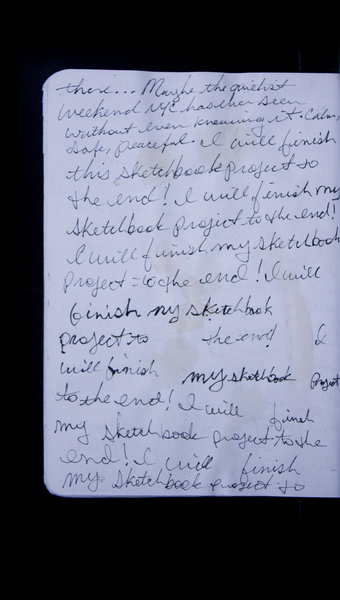 there... Maybe the quietest
weekend NYC has ever seen
without even knowing it. Calm,
safe, peaceful. I will finish
this sketchbook project to
the end! I will finish my
sketchbook project to the end!
I will finish my sketchbook
project to the end! I will
finish my sketchbook
project to the end! I
will finish my sketchbook project
to the end! I will finish
my sketchbook project to the
end! I will finish
my sketchbook project to